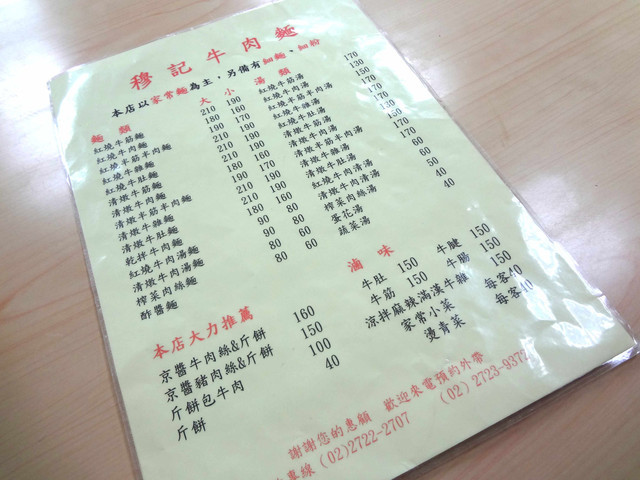 穆記牛肉麵
本店以家常麵為主，另備有細麵、細粉
麵類 大 小
紅燒牛筋麵 210 190
紅燒牛肉麵 180 160
紅燒半筋半肉麵 190 170
紅燒牛雜麵 210 190
紅燒牛肚麵 210 190
清燉牛筋麵 210 190
清燉牛肉麵 180 160
清燉半筋半肉麵 190 170
清燉牛雜麵 210 190
清燉牛肚麵 210 190
乾拌牛肉麵 180 160
紅燒牛肉湯麵 90 80
清燉牛肉湯麵 90 80
榨菜肉絲麵 80 60
酢醬麵 80 60
湯類
紅燒牛筋湯 170
紅燒牛肉湯 130
紅燒半筋半肉湯 150
紅燒牛雜湯 170
紅燒牛肚湯 170
清燉牛筋湯
清燉牛肉湯
清燉半筋半肉湯
清燉牛雜湯
清燉牛肚湯 170
紅燒牛肉清湯 60
清燉牛肉清湯 60
榨菜肉絲湯 50
蛋花湯 40
蔬菜湯 40
滷味
牛肚 150 牛腱 150
牛筋 150 牛腸 150
涼拌麻辣滿漢牛雜 150
家常小菜 每客40
燙青菜 每客40
本店大力推薦
京醬牛肉絲&斤餅 160
京醬豬肉絲&斤餅 150
斤餅包牛肉 100
斤餅 40
謝謝您的惠顧 歡迎來電預約外帶
專線(02)2722-2707 (02) 2723-9372